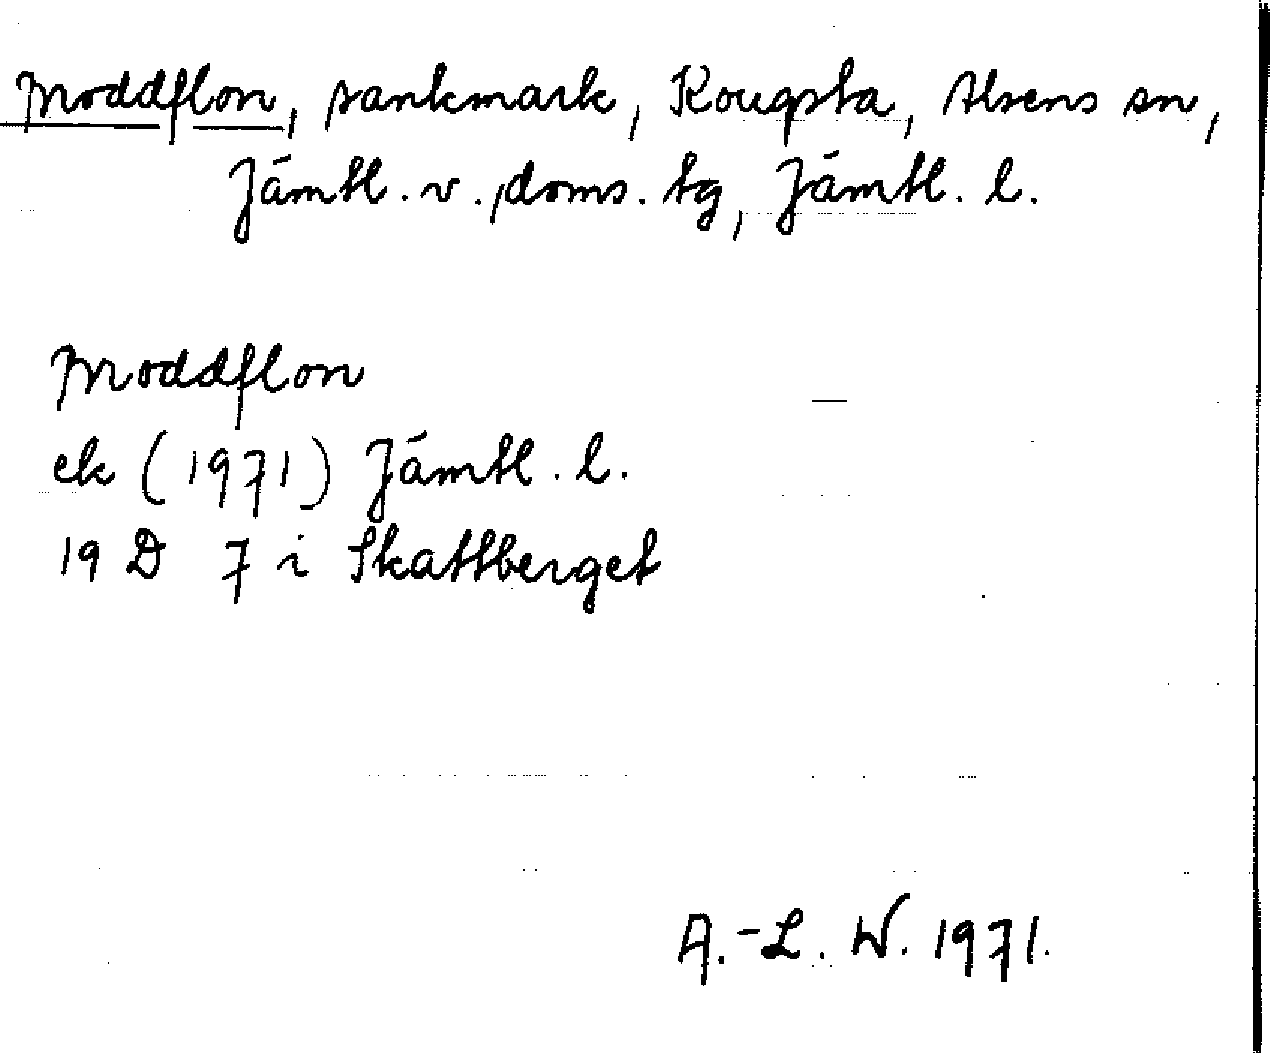 Moddflon, sankmark, Kougsta, Alsens sn,
Jämtl. v. doms. tg, Jämtl. l.
Moddflon
ek (1971) Jämtl. l.
19 D 7 i Skattberget
A.-L. W. 1971.